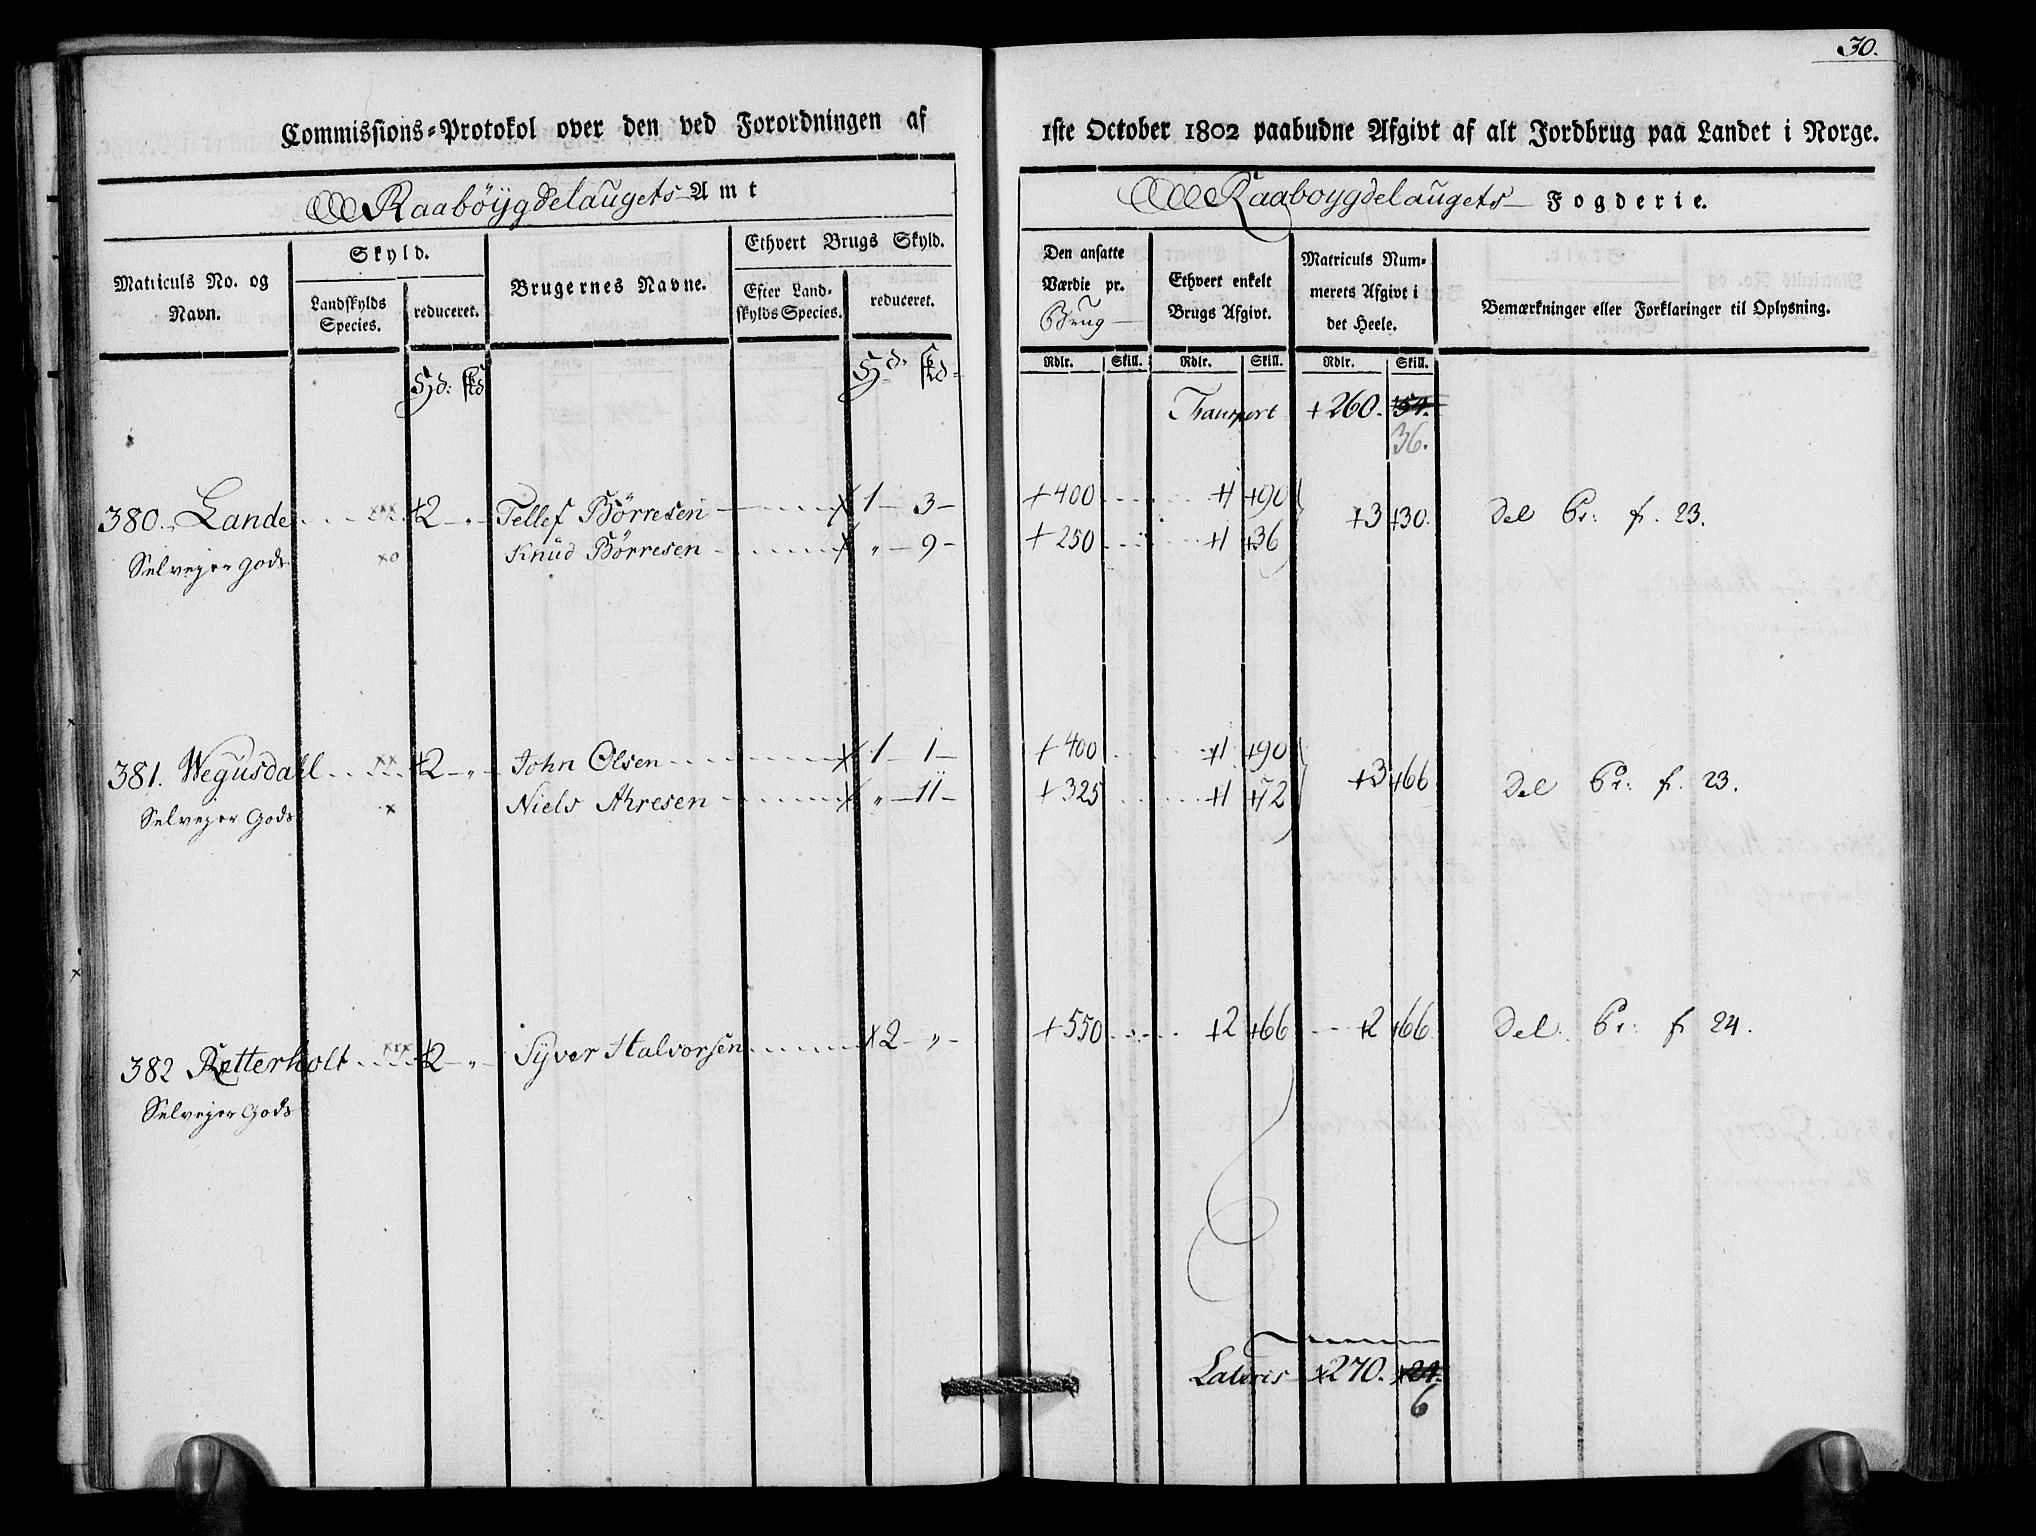 30.
Commissions=Protokol over den ved Forordningen af 1ste October 1802 paabudne Afgivt af alt Jordbrug paa Landet i Norge.
Raabøÿgdelaugets Amt
Raaboygdelaugets Fogderie.
Matriculs No. og Navn.
Skyld.
Landskylds Species.
reduceret.
Brugernes Navne.
Ethvert Brugs Skyld.
Efter Landskylds Species.
reduceret.
Den ansatte Værdie pr. Brug
Ethvert enkelt Brugs Afgivt.
Matriculs Nummerets Afgivt i det Heele.
Bemærkninger eller Forklaringer til Oplysning.
Rdlr. Skill. Rdlr. Skill. Rdlr. Skill.
Hd: skd Hd. skd
Transport + 260. 54.
36.
380. Lande xxx +2 " Tellef Børresen x 1 3 +400 +1 +90 +3 +30. Del Pr: f. 23.
Selvejer gods xo Knud Børresen x " 9 +250 +1 +36
381. Wegusdahl xx +2 " John Olsen x 1 1 +400 +1 +90 +3 +66 Del Pr: f. 23.
Selvejer Gods x Niels Ahresen x " 11 +325 +1 +72
382 Retterholt xxx +2 " Syver Halvorsen x 2 " +550 +2 +66 +2 +66 Del. Pr: f 24.
Selvejer Gods
Lateris x270. +24.
6